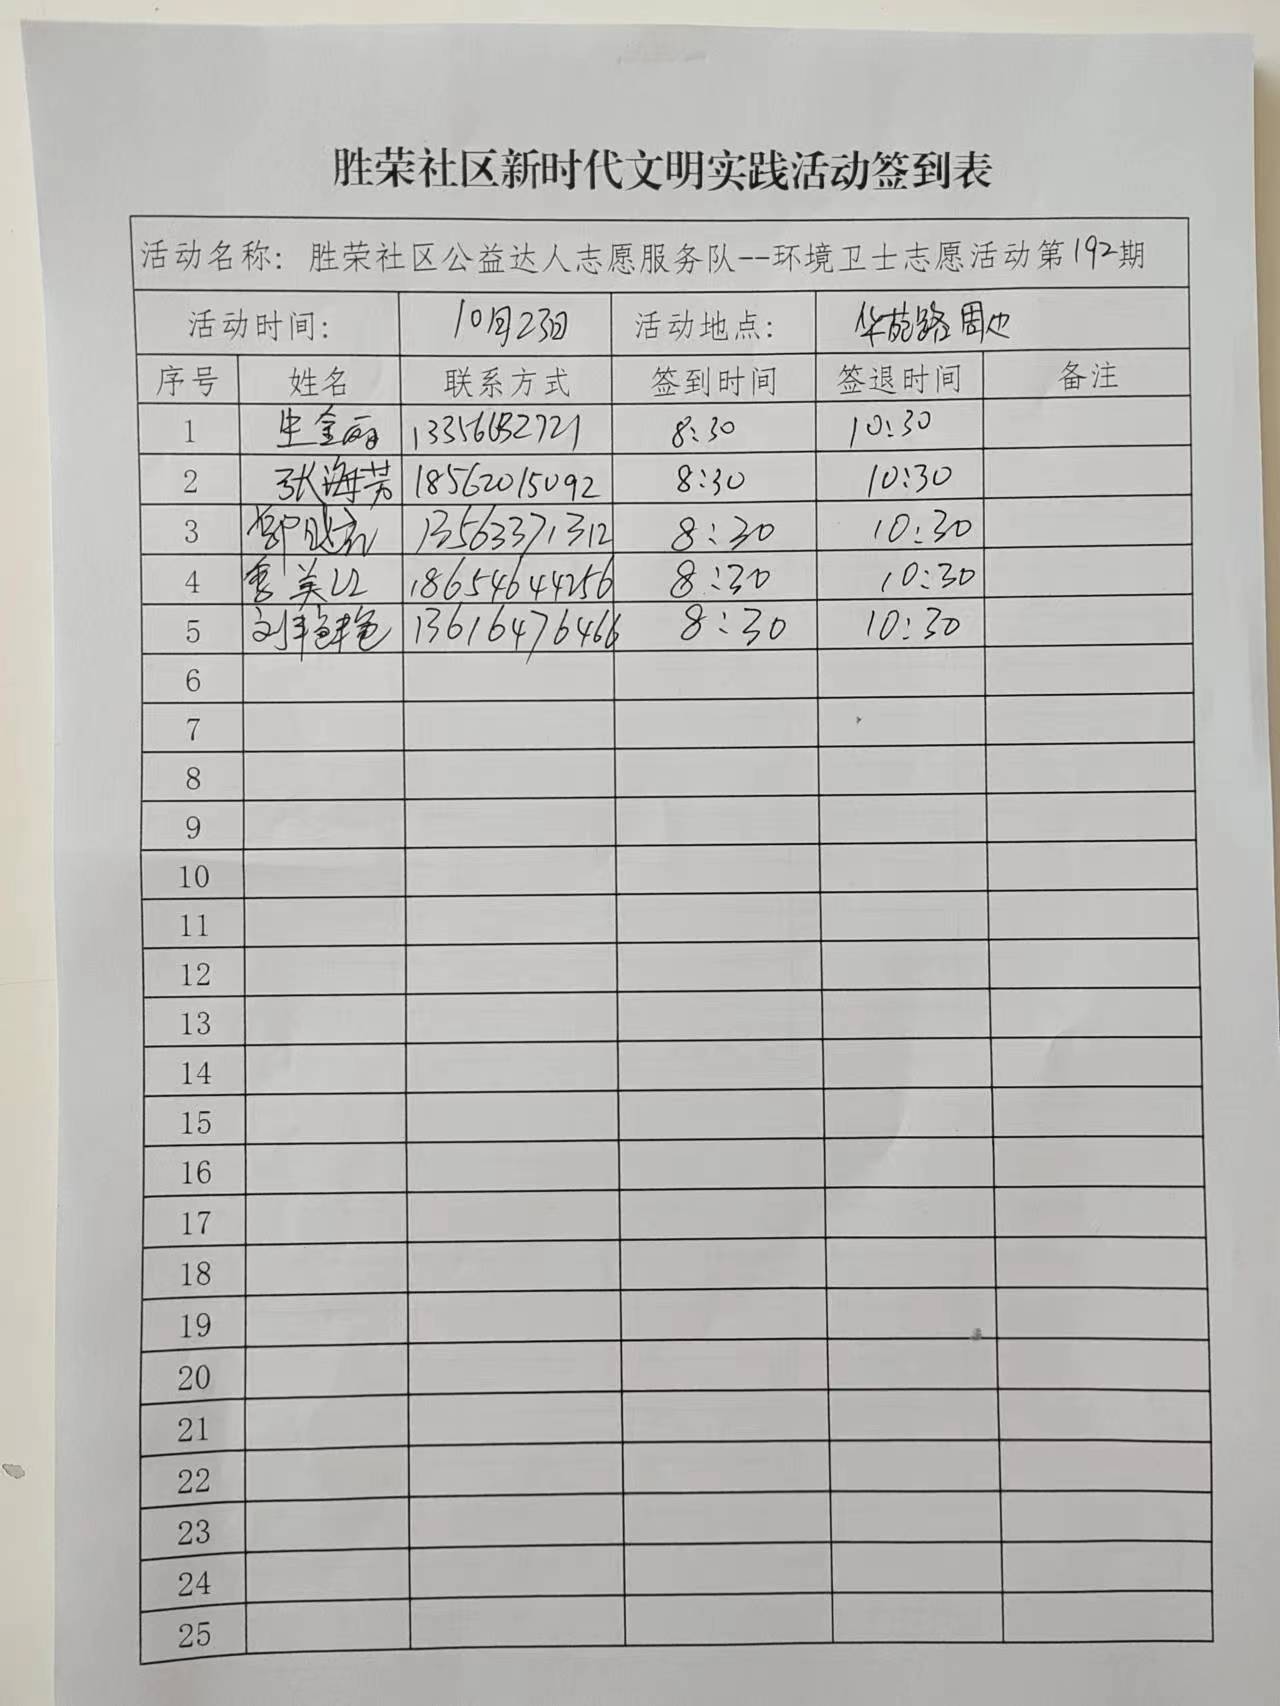 胜荣社区新时代文明实践活动签到表
活动名称：胜荣社区公益达人志愿服务队--环境卫士志愿活动第192期
活动时间： 10月23日 活动地点： 华苑路周边
序号 姓名 联系方式 签到时间 签退时间 备注
1 生金丽 8:30 10:30
2 张海芳 18562015092 8:30 10:30
3 13563371312 8:30 10:30
4 18654644256 8:30 10:30
5 刘艳艳 13616476466 8:30 10:30
6
7
8
9
10
11
12
13
14
15
16
17
18
19
20
21
22
23
24
25